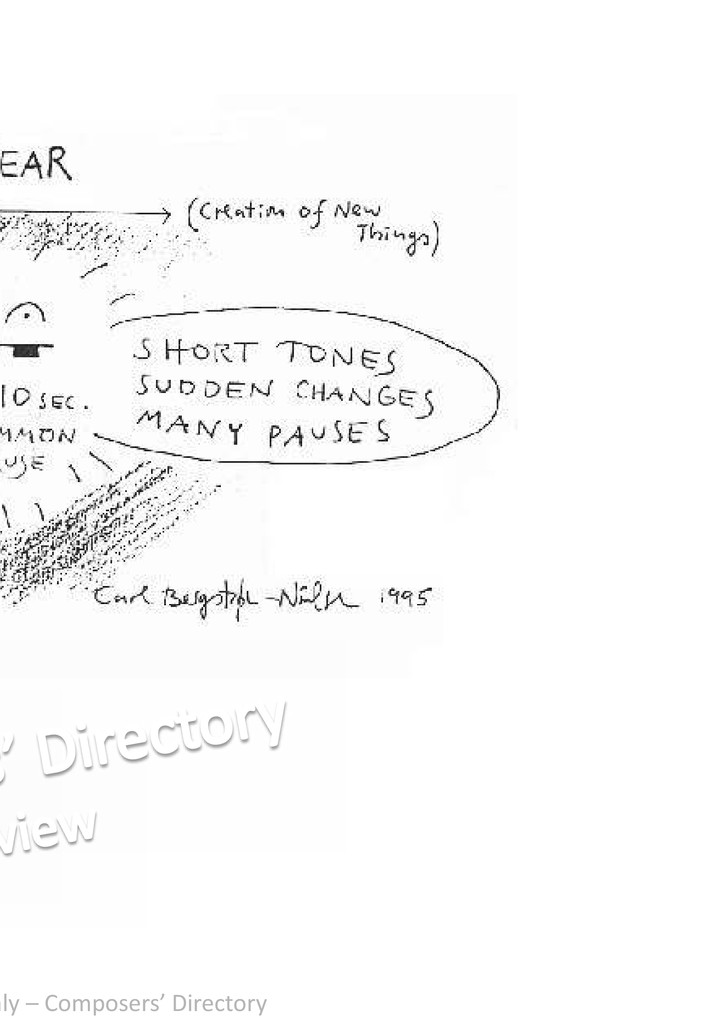 EAR
(Creation of New
Things)
SHORT TONES
SUDDEN CHANGES
MANY PAUSES
10 SEC.
MMON
USE
Carl Bergstrøm-Nielsen 1995
s' Directory
view
nly – Composers' Directory